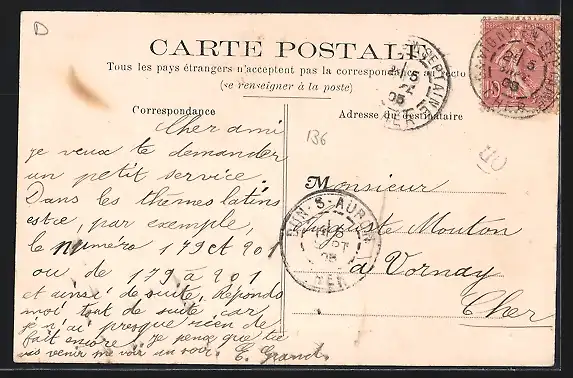 D
CARTE POSTALE
Tous les pays étrangers n'acceptent pas la correspondance au recto
(se renseigner à la poste)
Correspondance
Adresse du destinataire
136
Cher ami
je veux te demander
un petit service.
Dans les thèmes latins
estce, par exemple,
le numéro 179 et 201
ou de 179 à 201
et ainsi de suite. Réponds
moi tout de suite car
je n'ai presque rien de
fait encore, je pense que tu
vas venir me voir un soir. E. Grand
Monsieur
Auguste Mouton
à Vornay
Cher
DUN-S-AURON
CHER